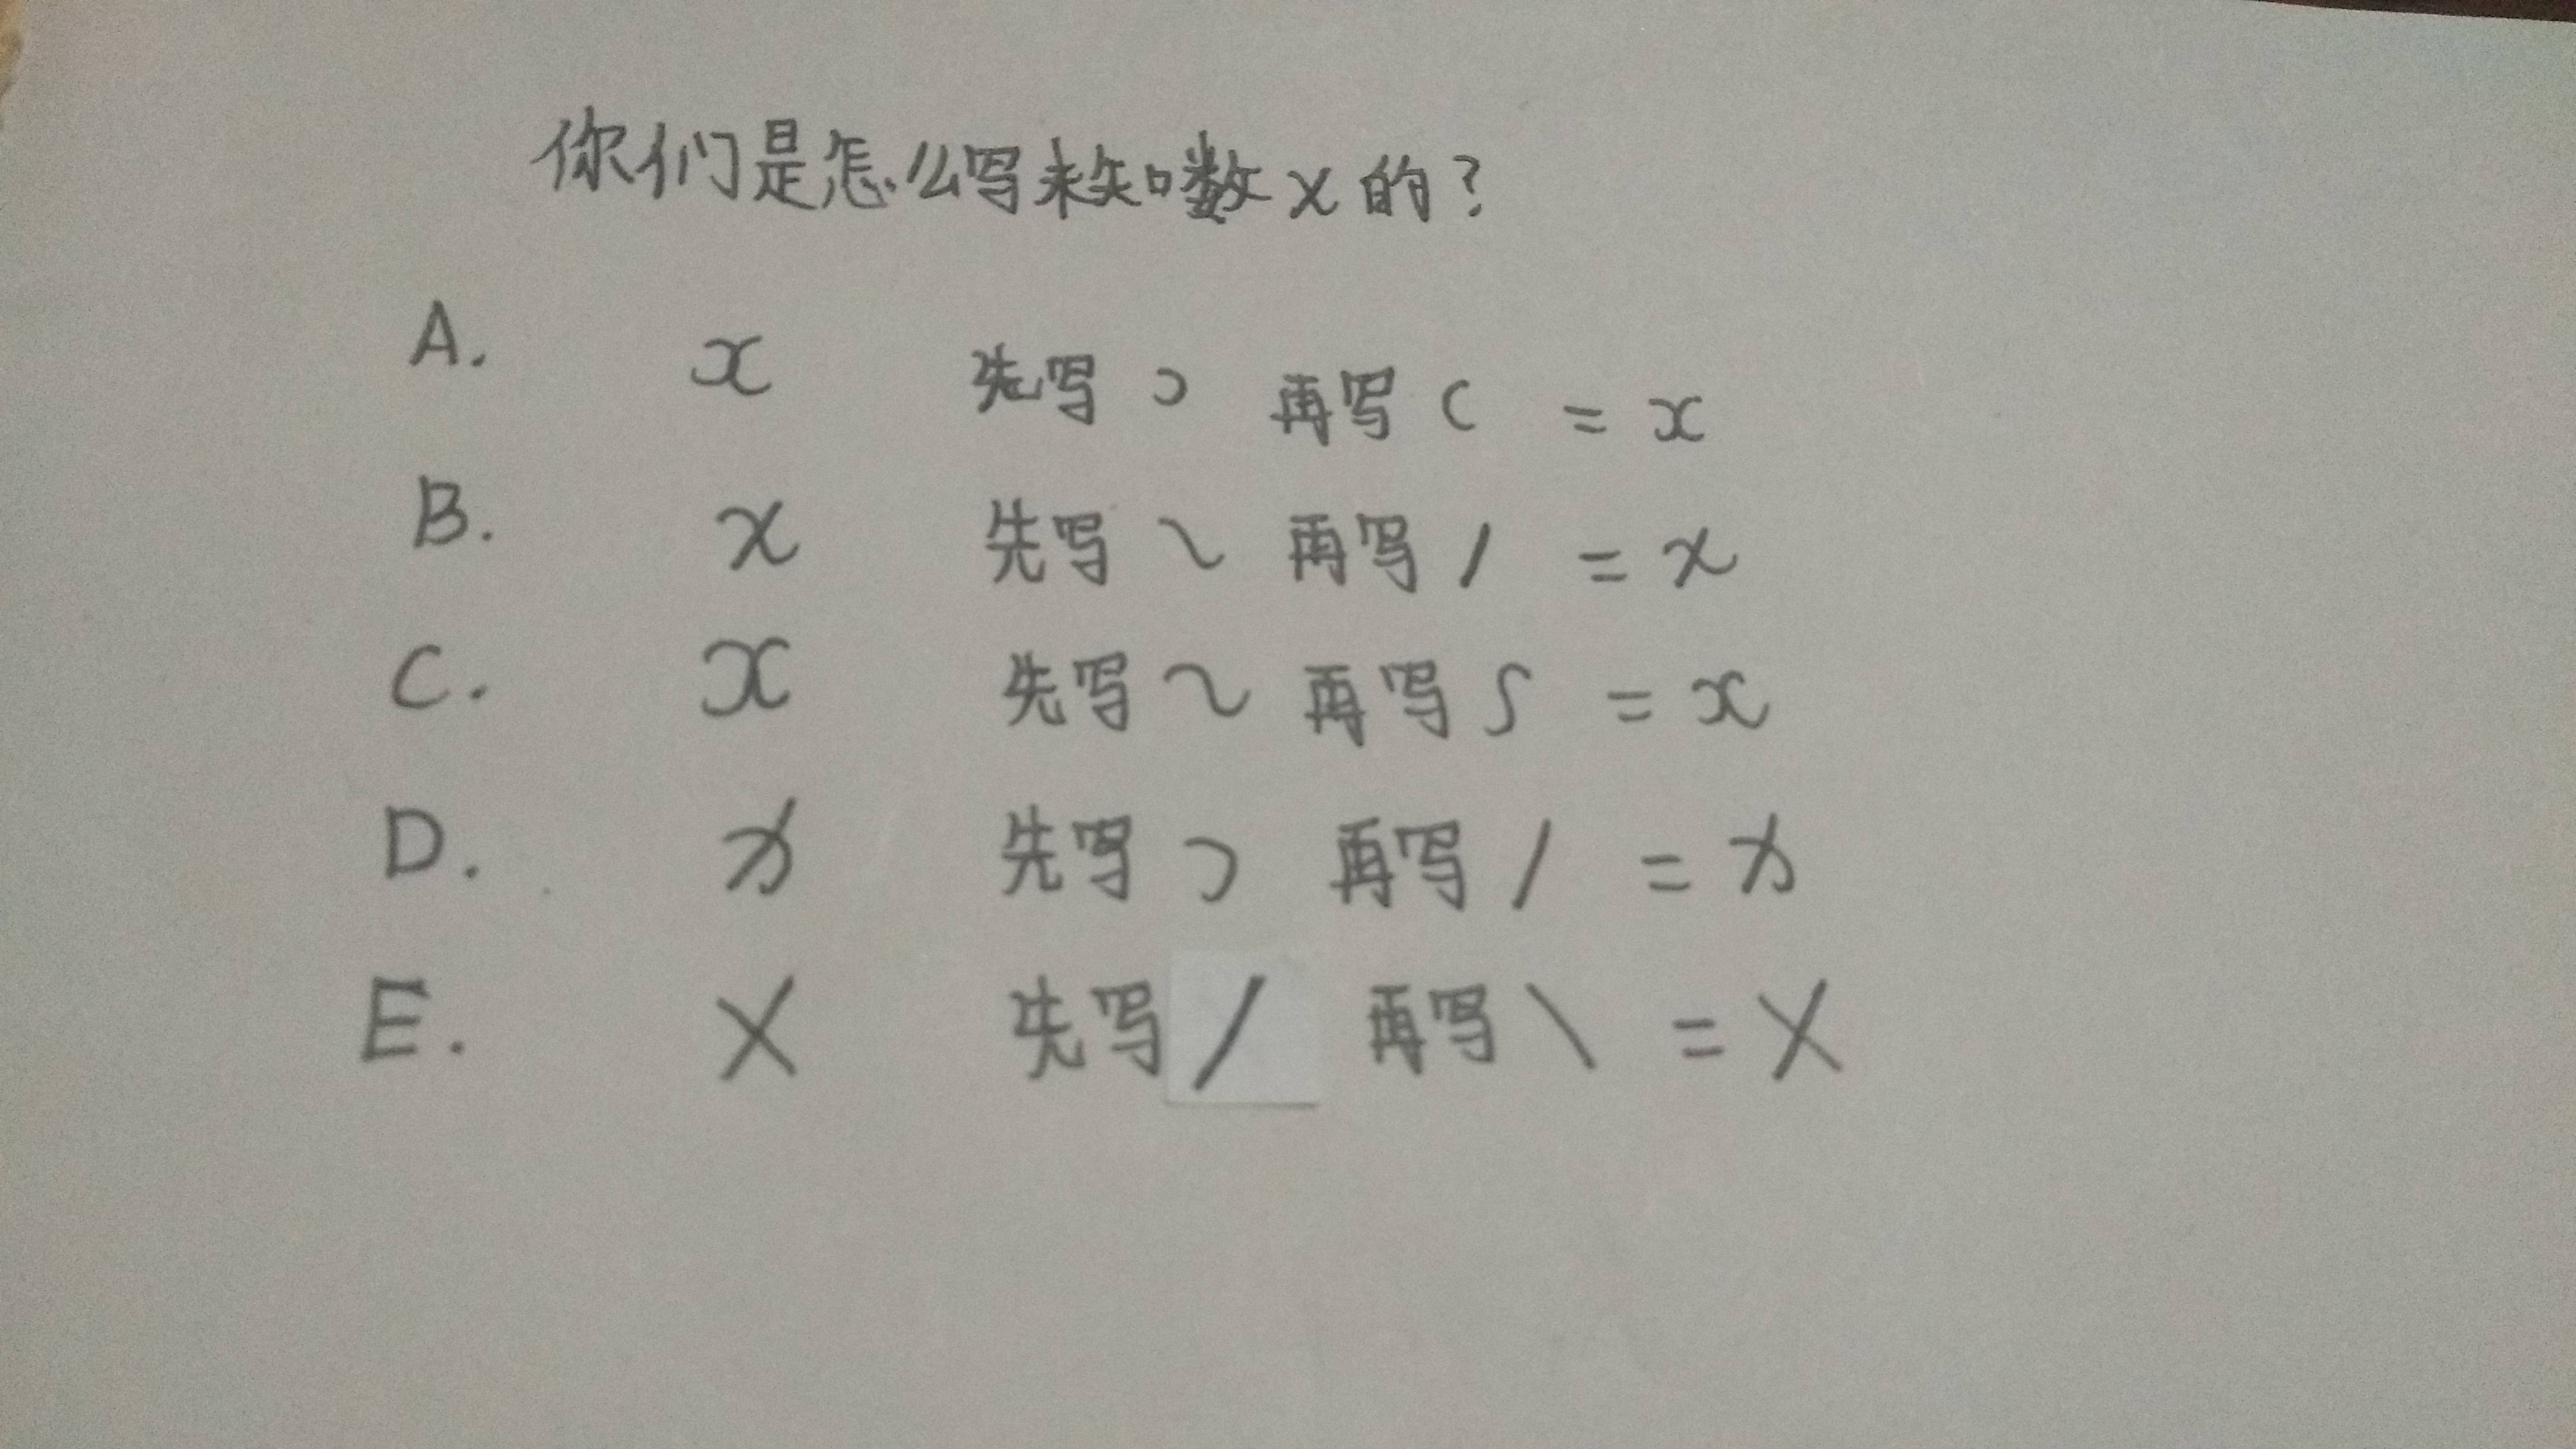 你们是怎么写未知数x的？
A. x 先写 ɔ 再写 c = x
B. x 先写 ~ 再写 / = x
C. x 先写 ~ 再写 ∫ = x
D. x 先写 ɔ 再写 / = x
E. X 先写 / 再写 \ = X